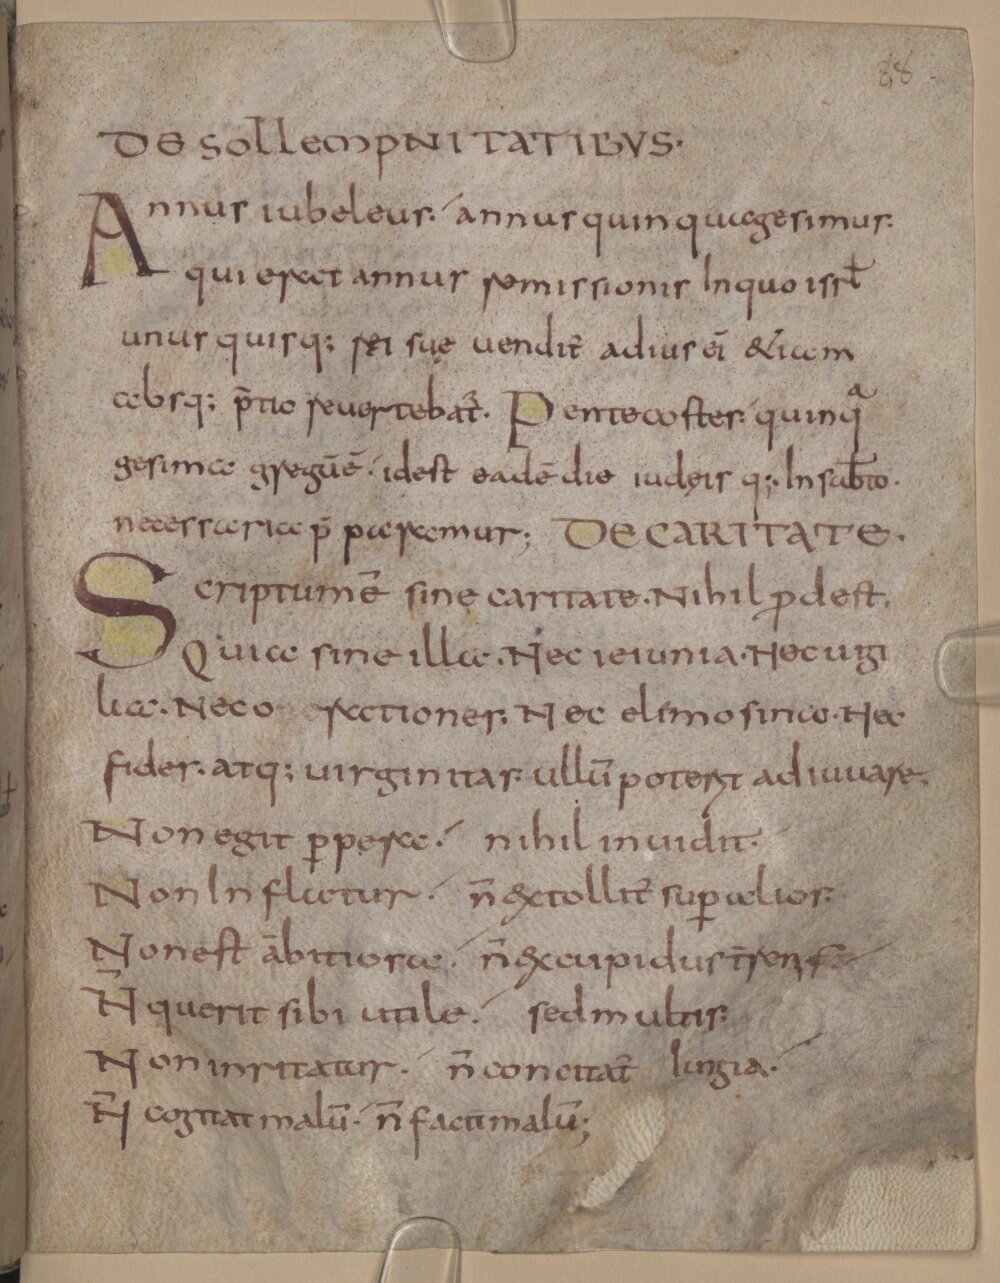 88
DE SOLLEMPNITATIBUS.
Annus iubeleus. annus quinquagesimus.
qui erat annus remissionis In quo isrł
unus quisq; rei suę uendit̄ adius eī & iam
absq; p̄tio reuertebat̄. Pentecostes. quinqa
gesima gregūē. idest eadē die iudęis q;. In sab̄to.
necessaria p̄ paramus; DE CARITATE.
Scriptum ē sine caritate. Nihil prodest,
Quia sine illa. Nec ieiunia. Nec uigi
lia. Nec o rationes. Nec elimosina. Nec
fides. atq; uirginitas. ullū poterit adiuuare.
Non egit perpera. nihil inuidit.
Non Inflatur. n̄ extollit̄ super alios.
Non est ābitiosa. n̄ ex cupidus
N̄ querit sibi utile. sed multis.
Non inritatur. n̄ concitat̄ lurgia.
N̄ cogitat malū. n̄ facit malū;